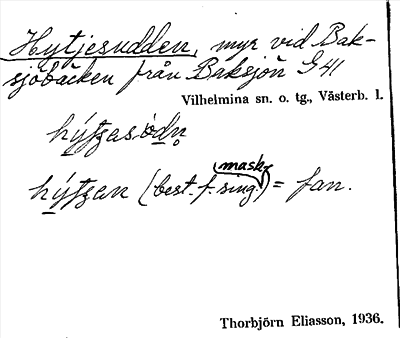 Hytjesudden, myr vid Bak-
sjöbäcken från Baksjön G 41
Vilhelmina sn. o. tg., Västerb. l.
mask.
(best. f. sing.) = fan.
Thorbjörn Eliasson, 1936.